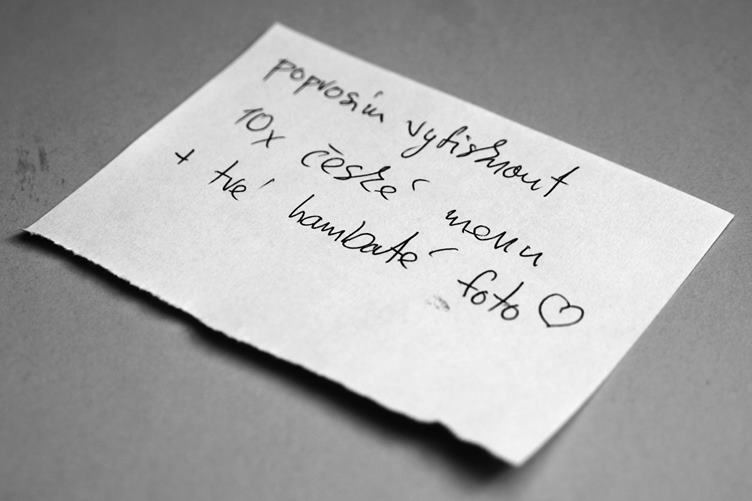 poprosím vytisknout
10x české menu
+ tvé hambaté foto ♡